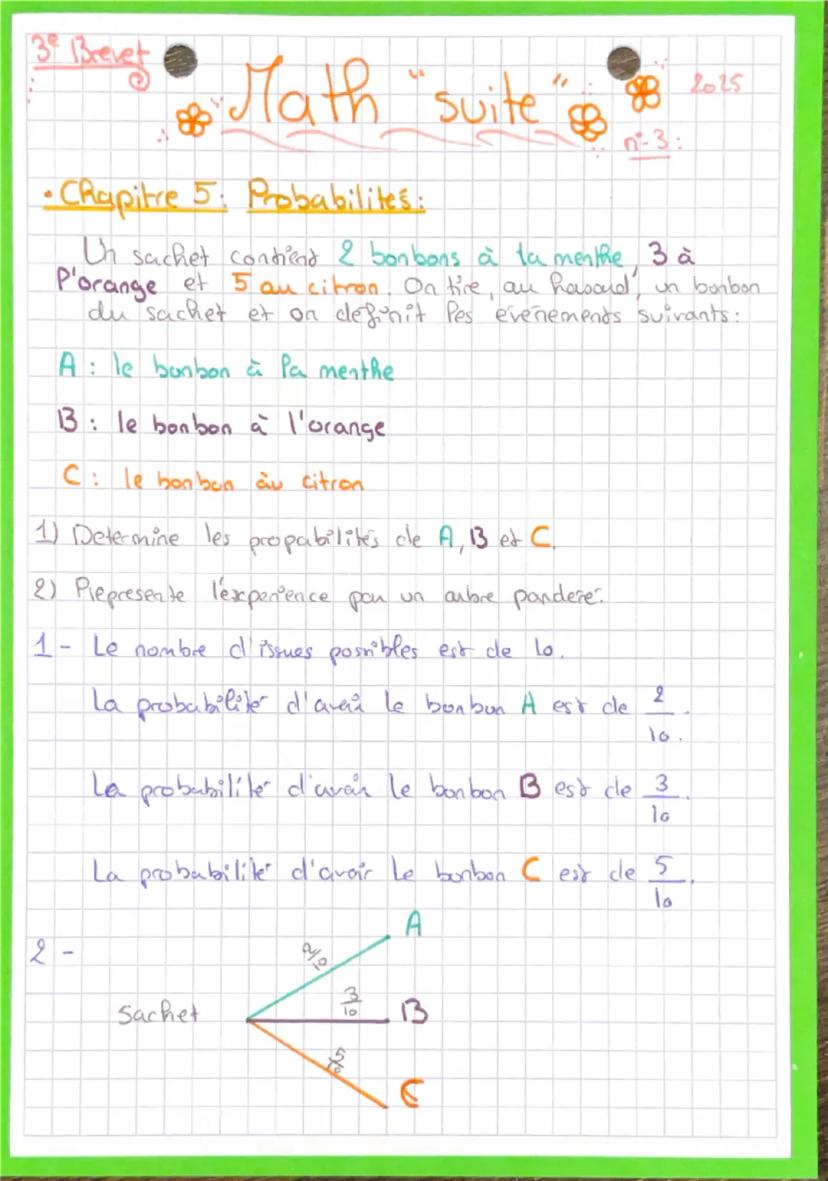 3e Brevet
Math "suite"
2025
n°3:
• Chapitre 5: Probabilités:
Un sachet contient 2 bonbons à la menthe, 3 à
l'orange et 5 au citron. On tire, au hasard, un bonbon
du sachet et on définit les événements suivants:
A : le bonbon à la menthe
B : le bonbon à l'orange
C : le bonbon àu citron
1) Determine les propabilités de A, B et C.
2) Représente l'expérience par un arbre pandéré.
1- Le nombre d'issues possibles est de 10.
La probabilité d'avoir le bonbon A est de 2/10.
La probabilité d'avoir le bonbon B est de 3/10.
La probabilité d'avoir le bonbon C est de 5/10.
2 -
A
2/10
Sachet
3/10
B
5/10
C